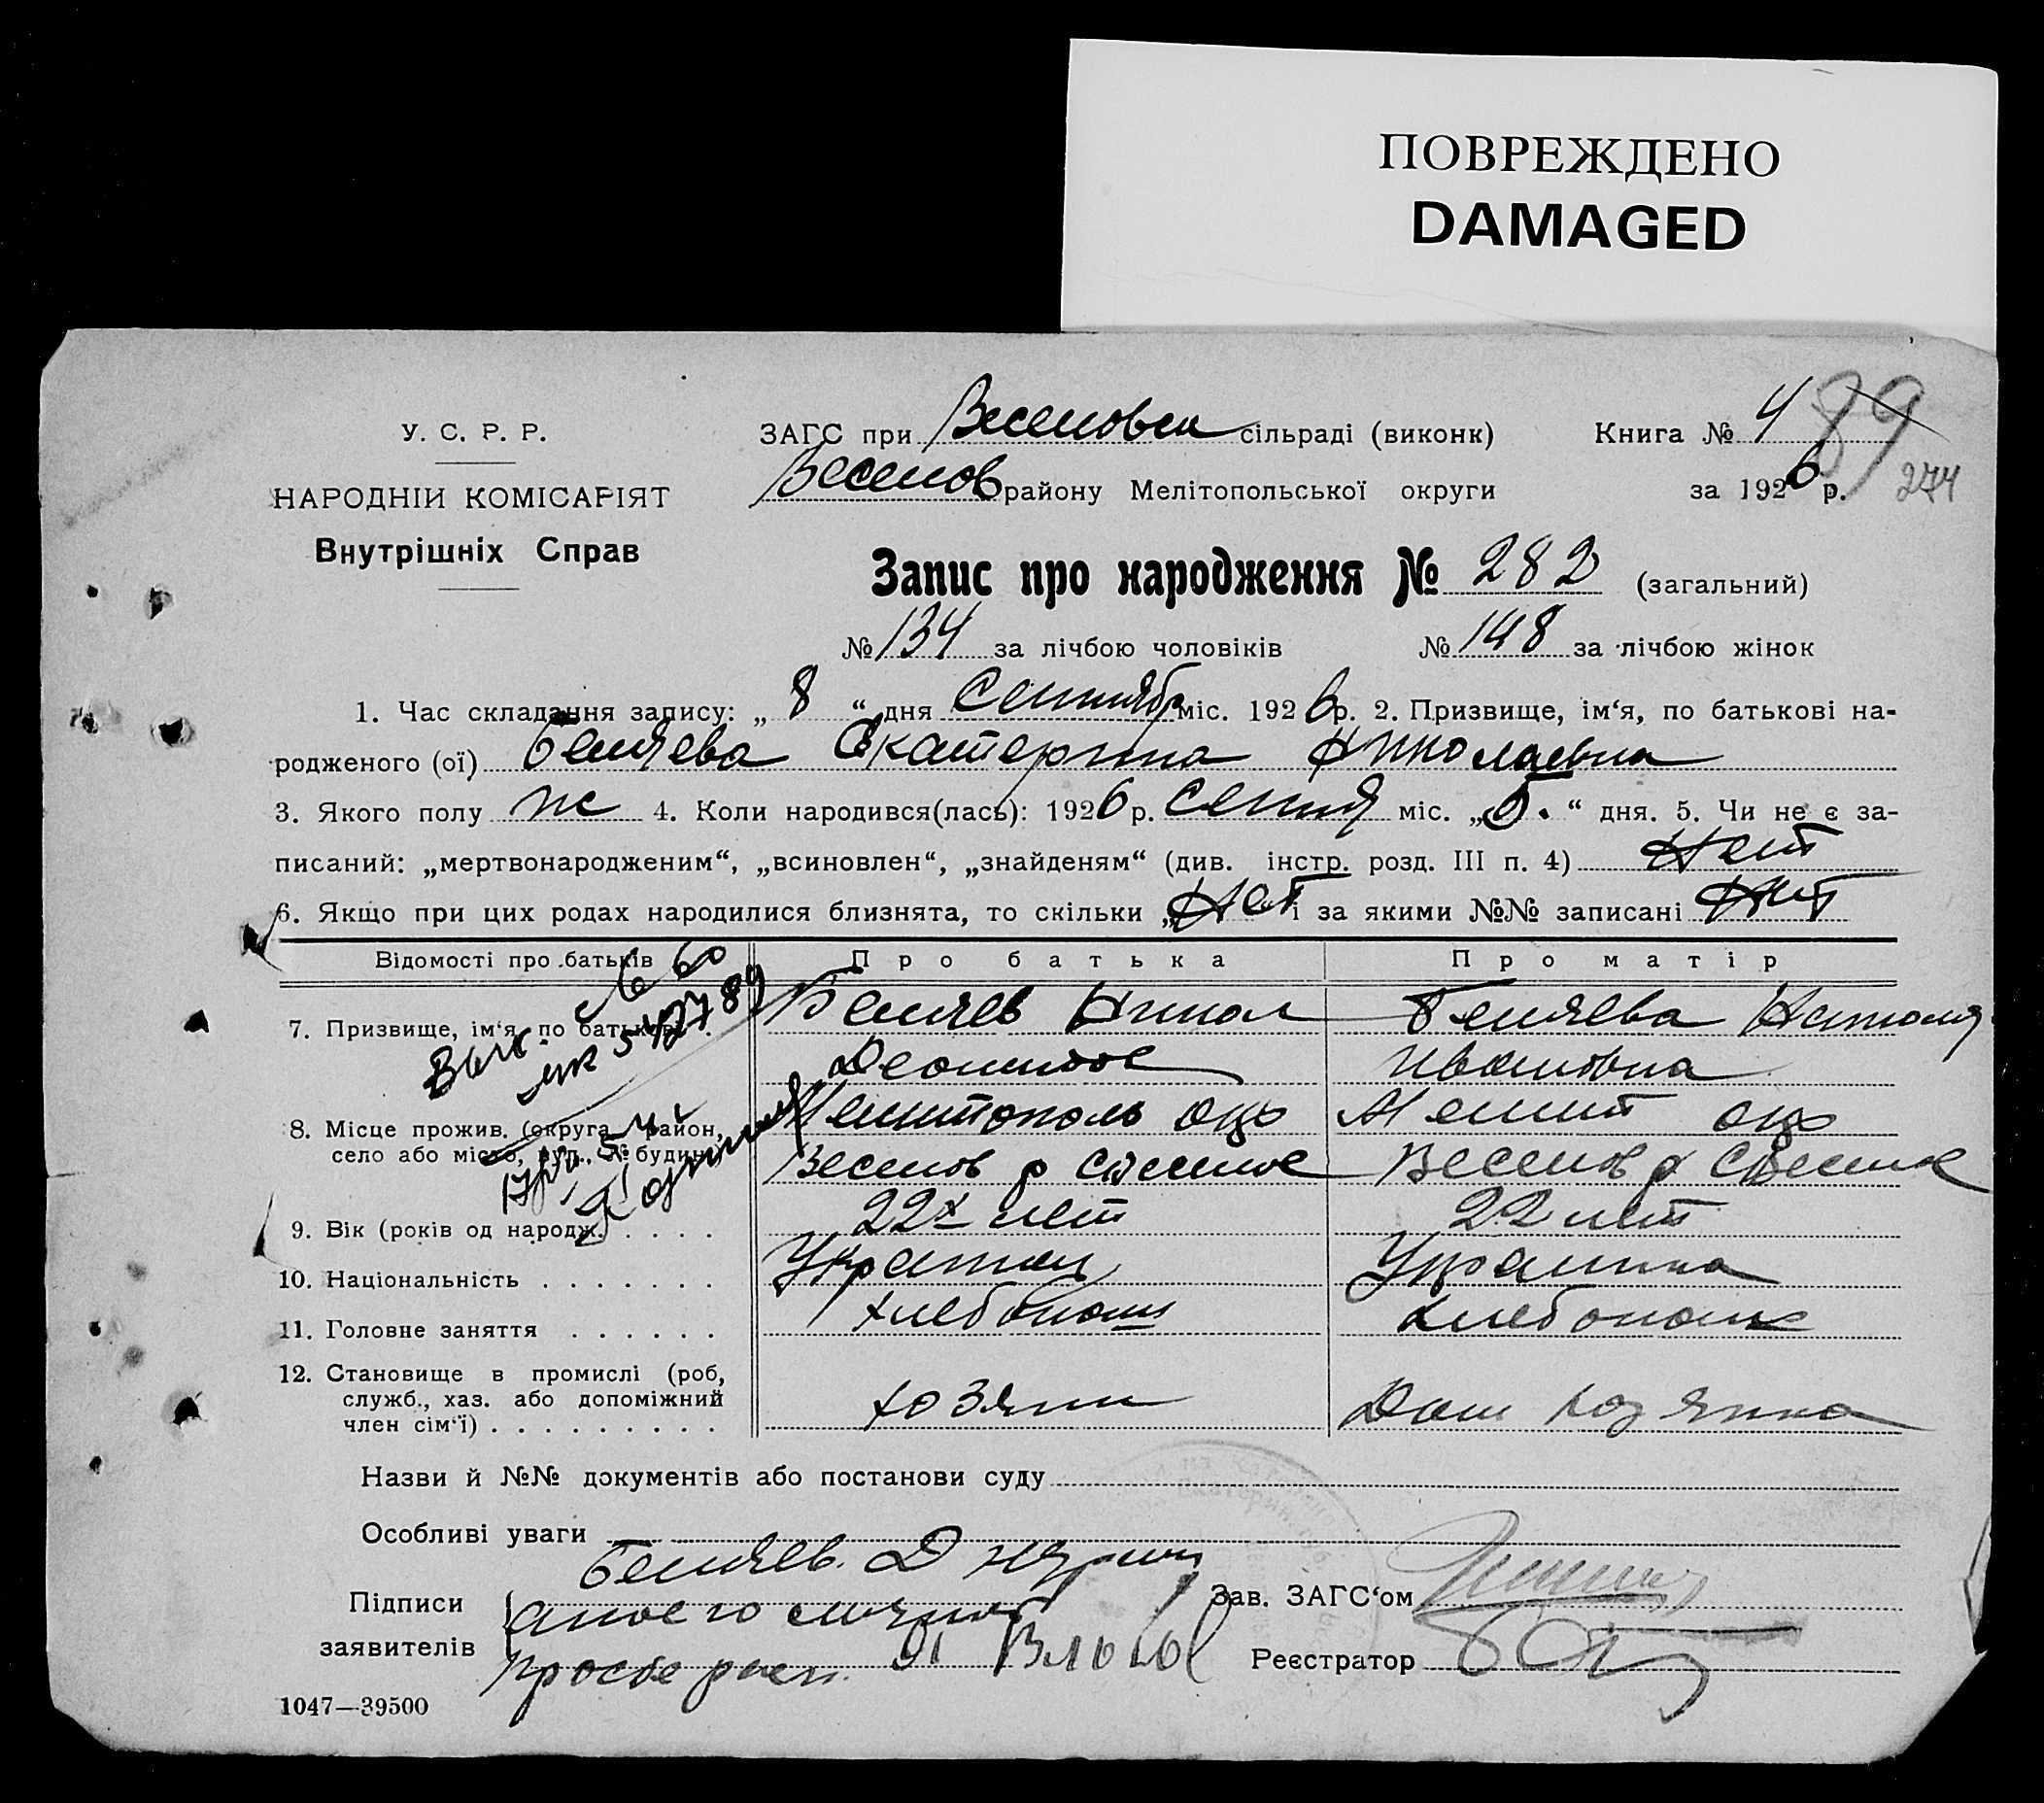 ПОВРЕЖДЕНО
DAMAGED
У. С. Р. Р.
ЗАГС при Веселовск сільраді (виконк)
Книга № 4
89
НАРОДНІЙ КОМІСАРІЯТ
Веселов району Мелітопольської округи
за 1926 р.
274
Внутрішніх Справ
Запис про народження № 282 (загальний)
№ 134 за лічбою чоловіків № 148 за лічбою жінок
1. Час складання запису: „ 8 “ дня Сентябр міс. 1926 р. 2. Призвище, ім‘я, по батькові на-
родженого (ої) Беляева Екатерина Николаевна
3. Якого полу ж 4. Коли народився(лась): 1926 р. сентя міс. „5.“ дня. 5. Чи не є за-
писаний: „мертвонародженим“, „всиновлен“, „знайденям“ (див. інстр. розд. III п. 4) Нет
6. Якщо при цих родах народилися близнята, то скільки „Нет і за якими №№ записані Нет
Відомості про батьків
Про батька
Про матір
7. Призвище, ім‘я, по батькові
Беляев Никол
Беляева Наталя
Ивановна
8. Місце прожив. (округа, район,
село або місто, вул., № будинк)
Мелитополь окр
Мелит окр
Веселов р с Веселое
Веселов р с Веселое
9. Вік (років од народж.) . . . .
22х лет
22 лет
10. Національність . . . . . . .
Украинец
Украинка
11. Головне заняття . . . . . .
хлебопаш
хлебопаш
12. Становище в промислі (роб,
служб., хаз. або допоміжний
член сім‘ї) . . . . . . . . .
хозяин
Дом хозяйка
Назви й №№ документів або постанови суду
Особливі уваги
Беляев.
Підписи
заявителів
а по его личной
просбе расп.
Зав. ЗАГС‘ом
Реєстратор
1047—39500